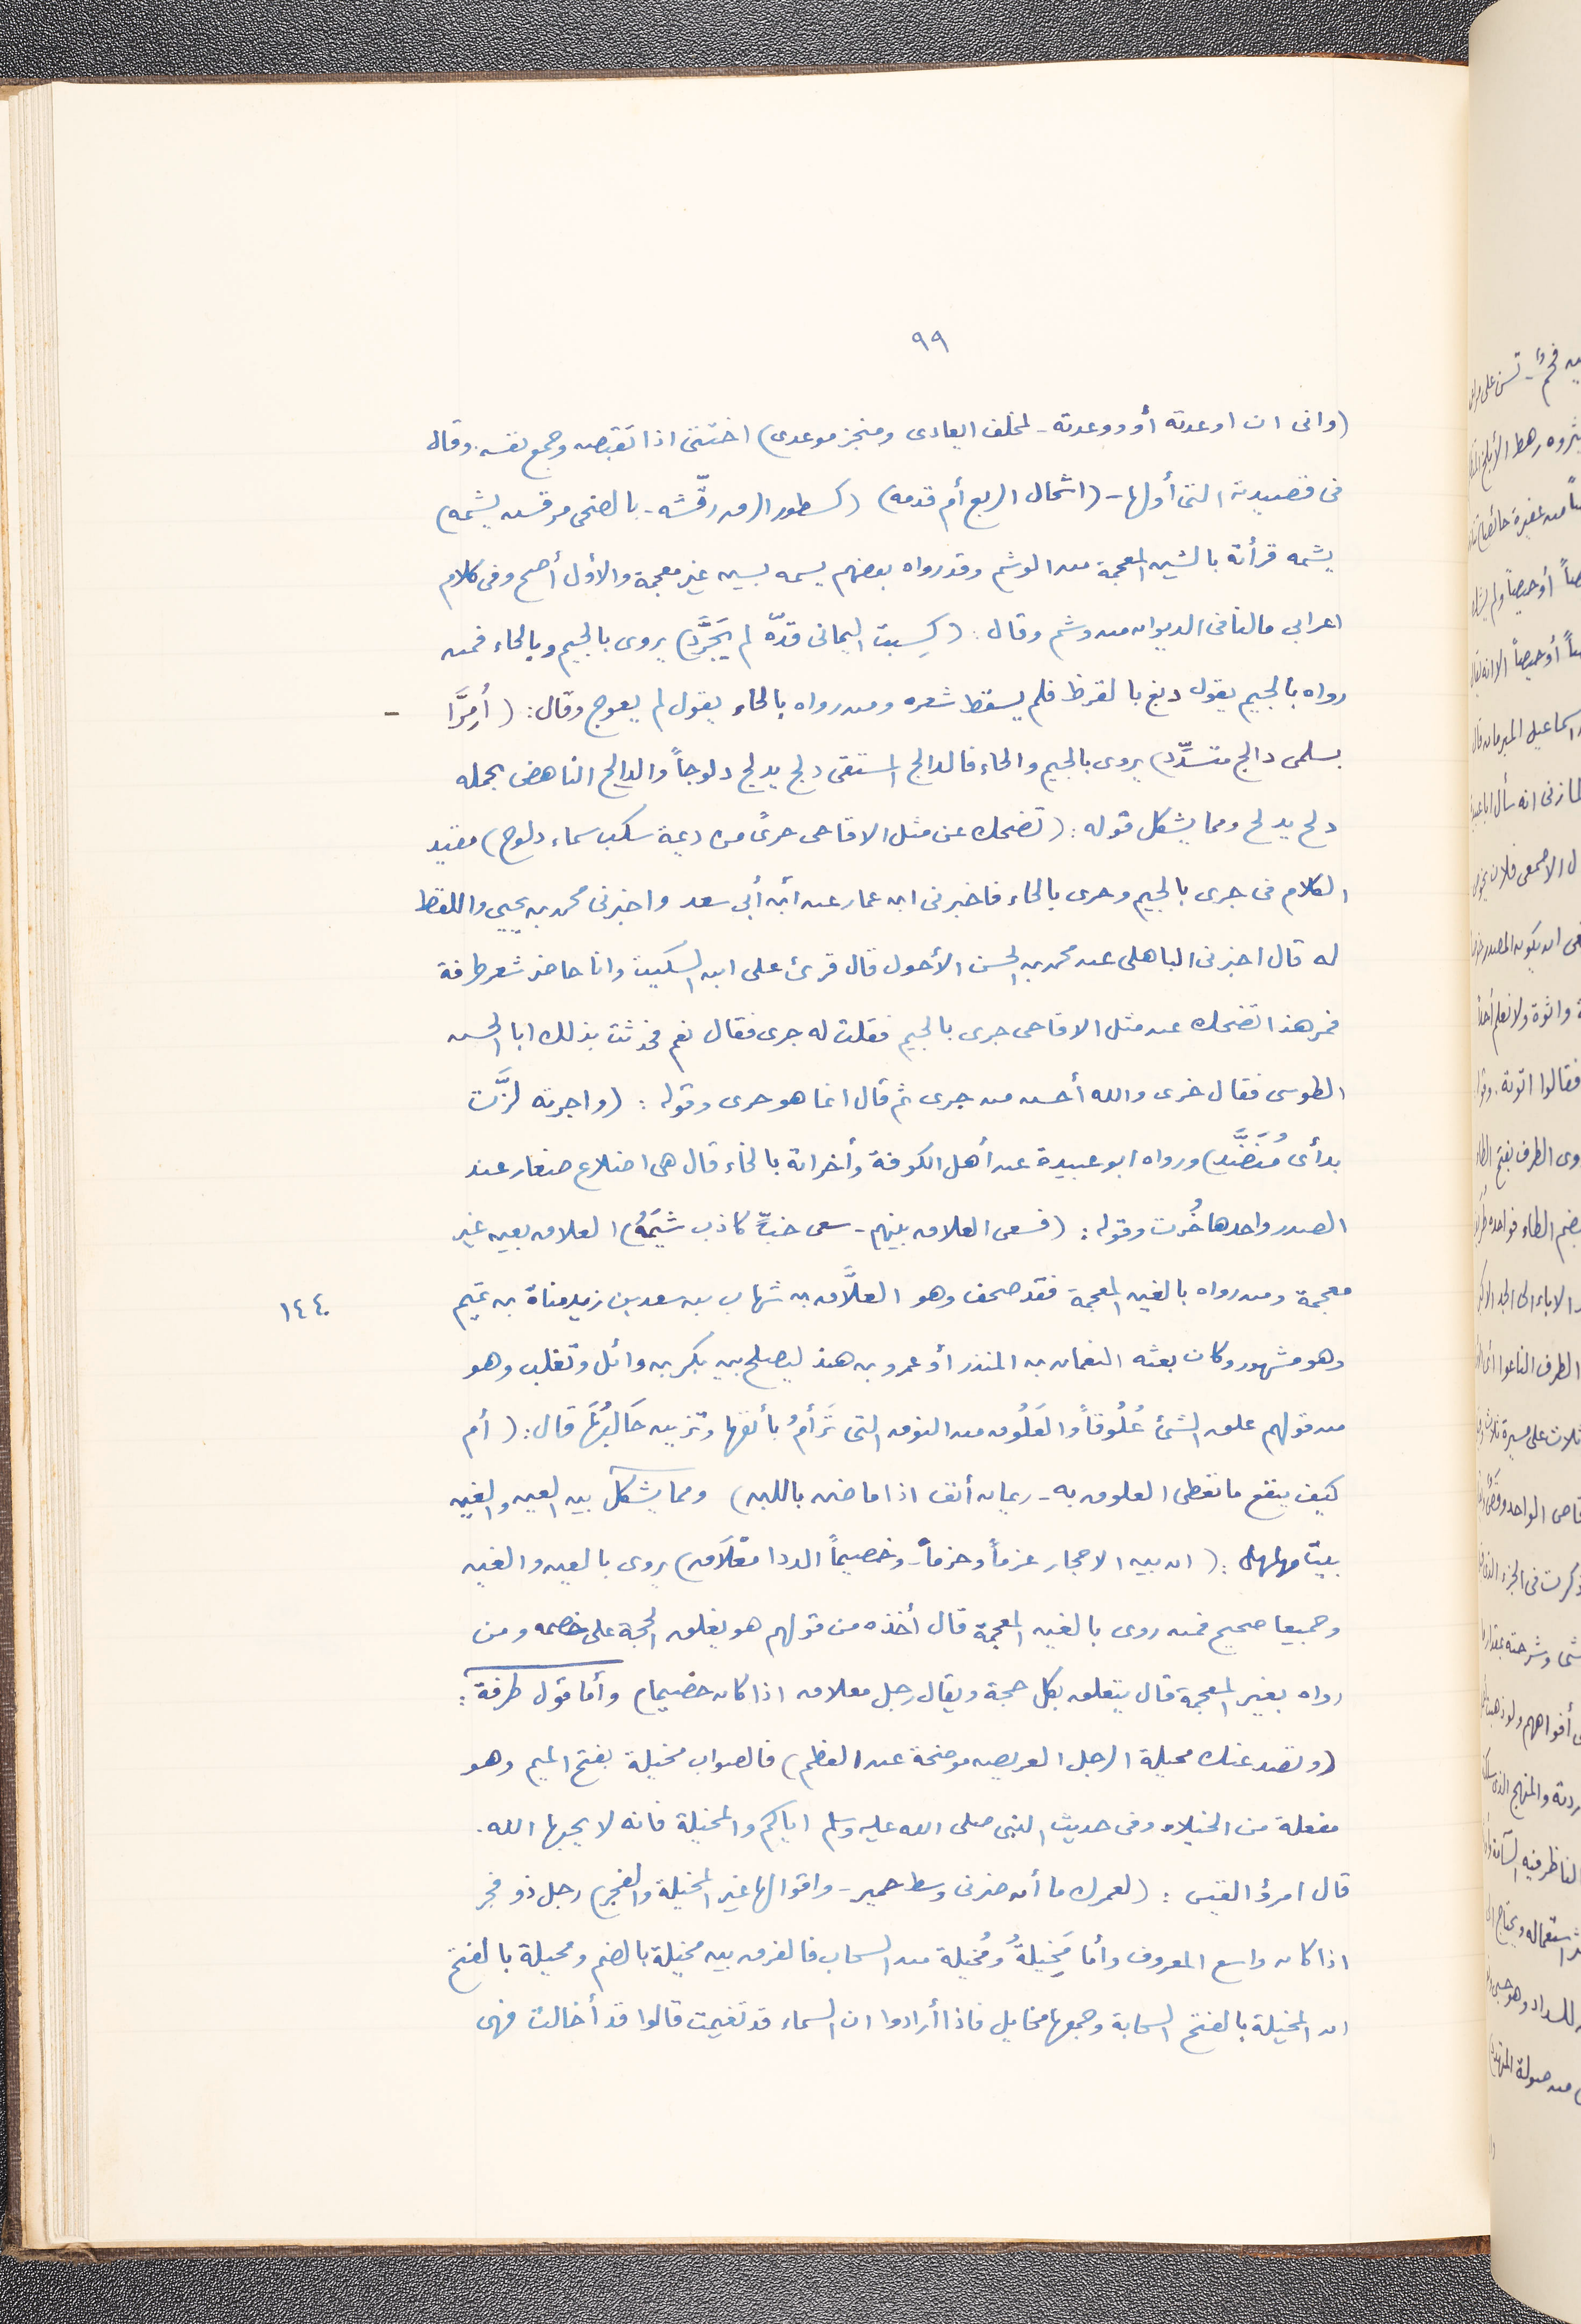 ٩٩
(وانى ان اوعدته أو ووعدته - لمخلف ايعادى ومنجز موعدى) اختتى اذا تقبصه وجمع نفسه. وقال
فى قصيدته التى أولها - (اشحال الربع أم قدمه) (كسطور الرق رقّشه - بالضحى مرقش يشمه)
يشمه قرأته بالشين المعجمة من الوشم وقد رواه بعضهم يسمه بسين غير معجمة والأول أصح وفى كلام
اعرابى مالنا فى الديوان من وشم وقال: (كِسبت اليمانى قدّه لم يَجَرَّدِ) يروى بالجيم وبالحاء فمن
رواه بالجيم يقول دبغ بالقرظ فلم يسقط شعره ومن رواه بالحاء يقول لم يعوج وقال: (أُمِرَّا -
بسلمى دالج متشدِّد) يروى بالجيم والحاء فالدالج المستقى دلج يدلج دلوجاً والدالح الناهض بحمله
دلح يدلح ومما يشكل قوله: (تضحك عن مثل الاقاحى حرىً من ديمة سكب سماء دلوح) مقيد
الكلام فى جرى بالجيم وحرى بالحاء فاخبرنى ابن عمار عن ابن أبى سعد واخبرنى محمد بن يحيى واللفظ
له قال اخبرنى الباهلى عن محمد بن الحسن الأحول قال قرئ على ابن السكيت وانا حاضر شعر طرفة
فمر هذا تضحك عن مثل الاقاحى جرى بالجيم فقلت له جرى فقال نعم فحدثت بذلك ابا الحسن
الطوسى فقال خرى والله أحسن من جرى ثم قال انما هو حرى وقوله: (واجرنة لزَّت
بدأى مُنَضَّدِ) ورواه ابو عبيدة عن أهل الكوفة وأخراته بالخاء قال هى اضلاع صغار عند
الصدر واحدها خُرت وقوله: (فسعى العلاق بينهم - سعى خبٍّ كاذب شيَمُهُ) العلاق بعين غير
معجمة ومن رواه بالغين المعجمة فقد صحف وهو العلَّاق بن شهاب بن سعد بن زيد مناة بن تميم
١٤٤٠
وهو مشهور وكان بعثه النعمان بن المنذر أو عمرو بن هند ليصلح بين بكر بن وائل وتغلب وهو
من قولهم علق الشئ عُلُوقاً والعَلُوق من النوق التى تَرأمُ بأنفها وتزبن حَالِبُهَا قال: (أم
كيف ينفع ما تعطى العلوق به - ريمان أنف اذا ما ضن باللبن) ومما يشكل بين العين والغين
بيت مهلهل: (ان بين الاحجار عزماً وحزماً - وخصيماً الددا مغلاق) يروى بالعين والغين
وجميعا صحيح فمن روى بالغين المعجمة قال أخذه من قولهم هو يغلق الحجة على خصمه ومن
رواه بغير المعجمة قال يتعلق بكل حجة ويقال رجل معلاق اذا كان خصيما) وأما قول طرفة:
(ولصد عنك مخيلة الرجل العريض موضحة عن العظم) فالصواب مخيلة بفتح الميم وهو
مفعلة من الخيلاء وفى حديث النبى صلى الله عليه وسلم اياكم والمخيلة فانه لا يحبها الله.
قال امرؤ القيس: (لعمرك ما أن ضرنى وسط حمير - واقوالها غير المخيلة والفجر) رجل ذو فجر
اذا كان واسع المعروف وأما مَخِيلَةُ ومُخيلة من السحاب فالفرق بين مخيلة بالضم ومخيلة بالفتح
ان المخيلة بالفتح السحابة وجمعها مخايل فاذا أرادوا ان السماء قد تغيمت قالوا قد أخالت فهى